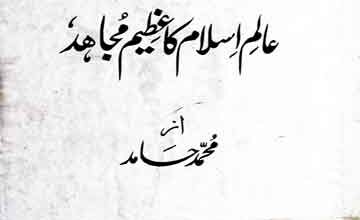 عالمِ اِسلام کا عظِیم مُجاہد
از
مُحمّد حامد